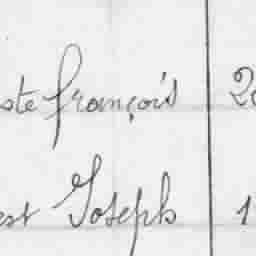 ste françois 2
est Joseph 1